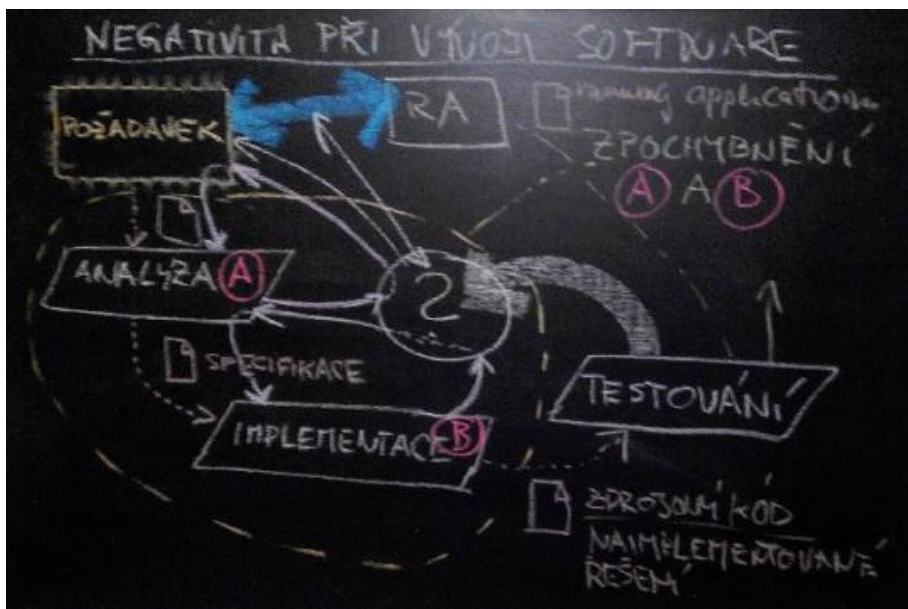 NEGATIVITA PŘI VÝVOJI SOFTWARE
POŽADAVEK
RA
running application
ZPOCHYBNĚNÍ
A A B
ANALÝZA A
2
SPECIFIKACE
IMPLEMENTACE B
TESTOVÁNÍ
ZDROJOVÝ KÓD
NAIMPLEMENTOVANÉ
ŘEŠENÍ